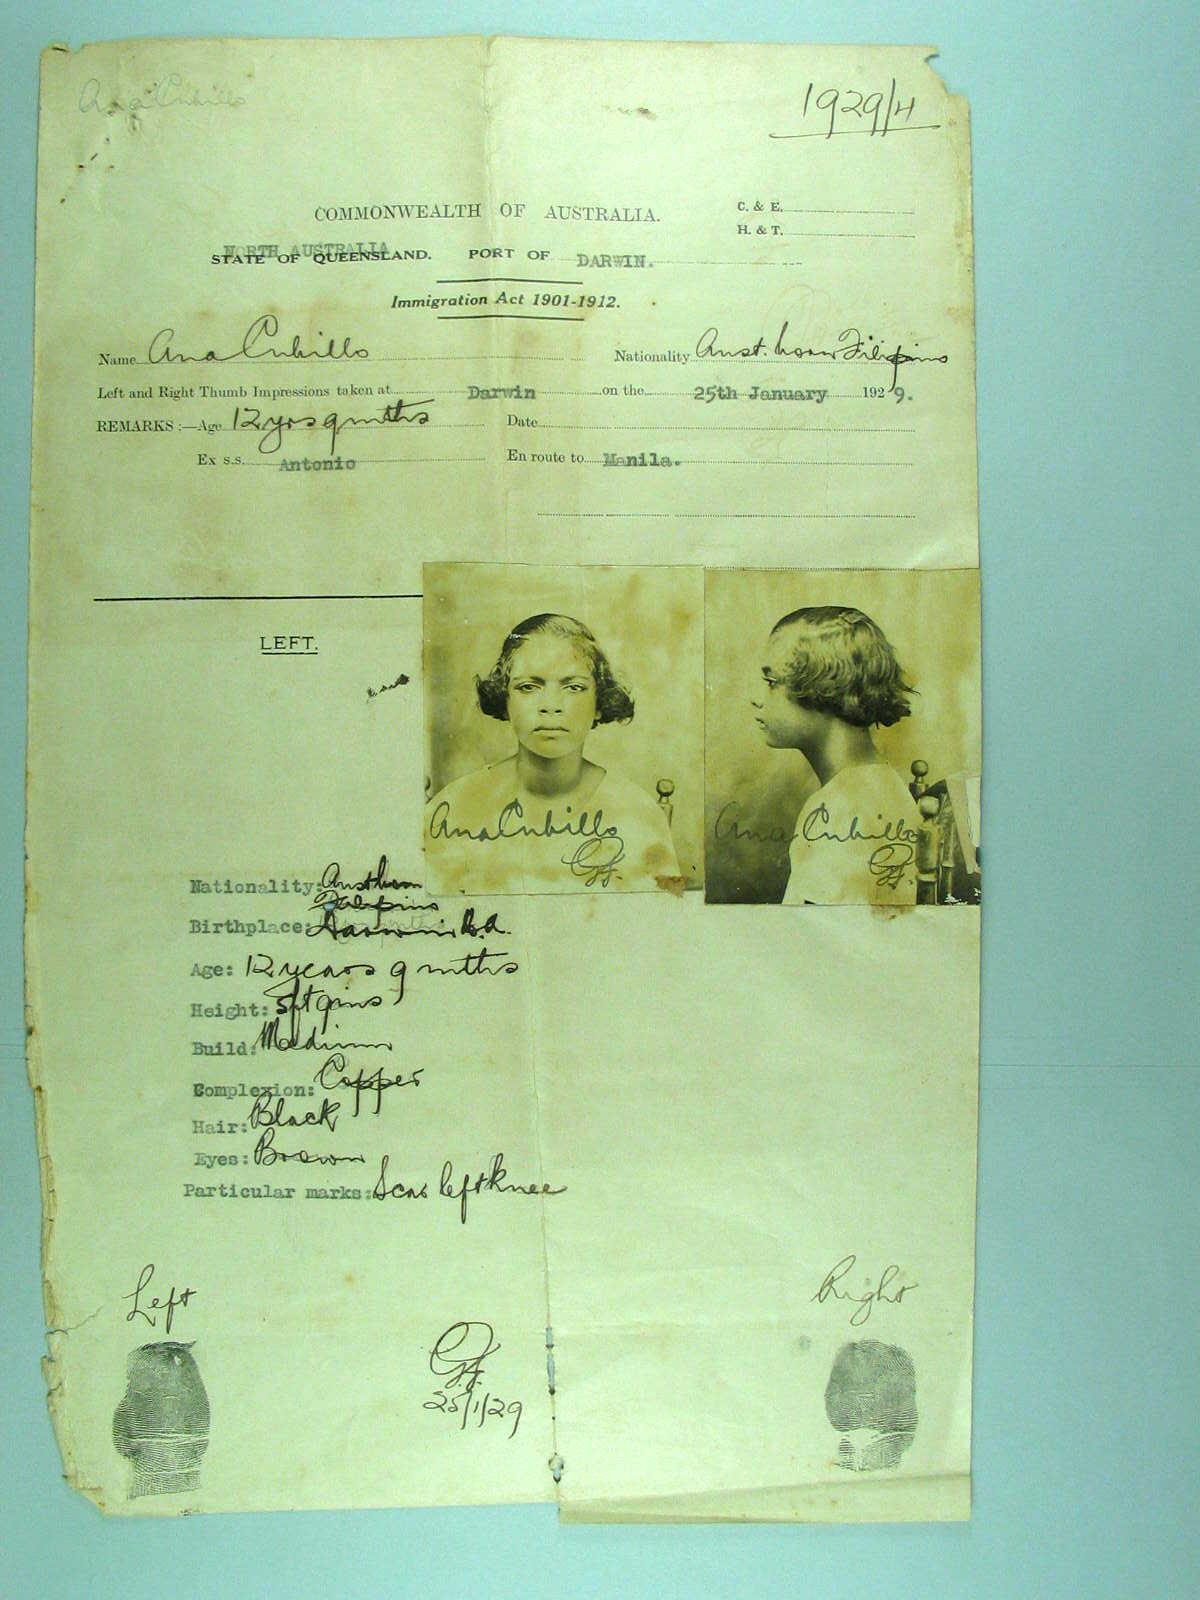 Ana Cubillo
1929/4
COMMONWEALTH OF AUSTRALIA.
C. & E.
H. & T.
NORTH AUSTRALIA
STATE OF QUEENSLAND. PORT OF DARWIN.
Immigration Act 1901-1912.
Name Ana Cubillo Nationality Aust. born Filipino
Left and Right Thumb Impressions taken at Darwin on the 25th January 1929.
REMARKS :—Age 12 yrs 9 mths Date
Ex s.s. Antonio En route to Manila.
LEFT.
Ana Cubillo
Ana Cubillo
Nationality: Aust born
Filipino
Birthplace: Darwin N.A.
Age: 12 years 9 mths
Height: 5ft 9ins
Build: Medium
Complexion: Copper
Hair: Black
Eyes: Brown
Particular marks: Scar left knee
Left
Right
25/1/29